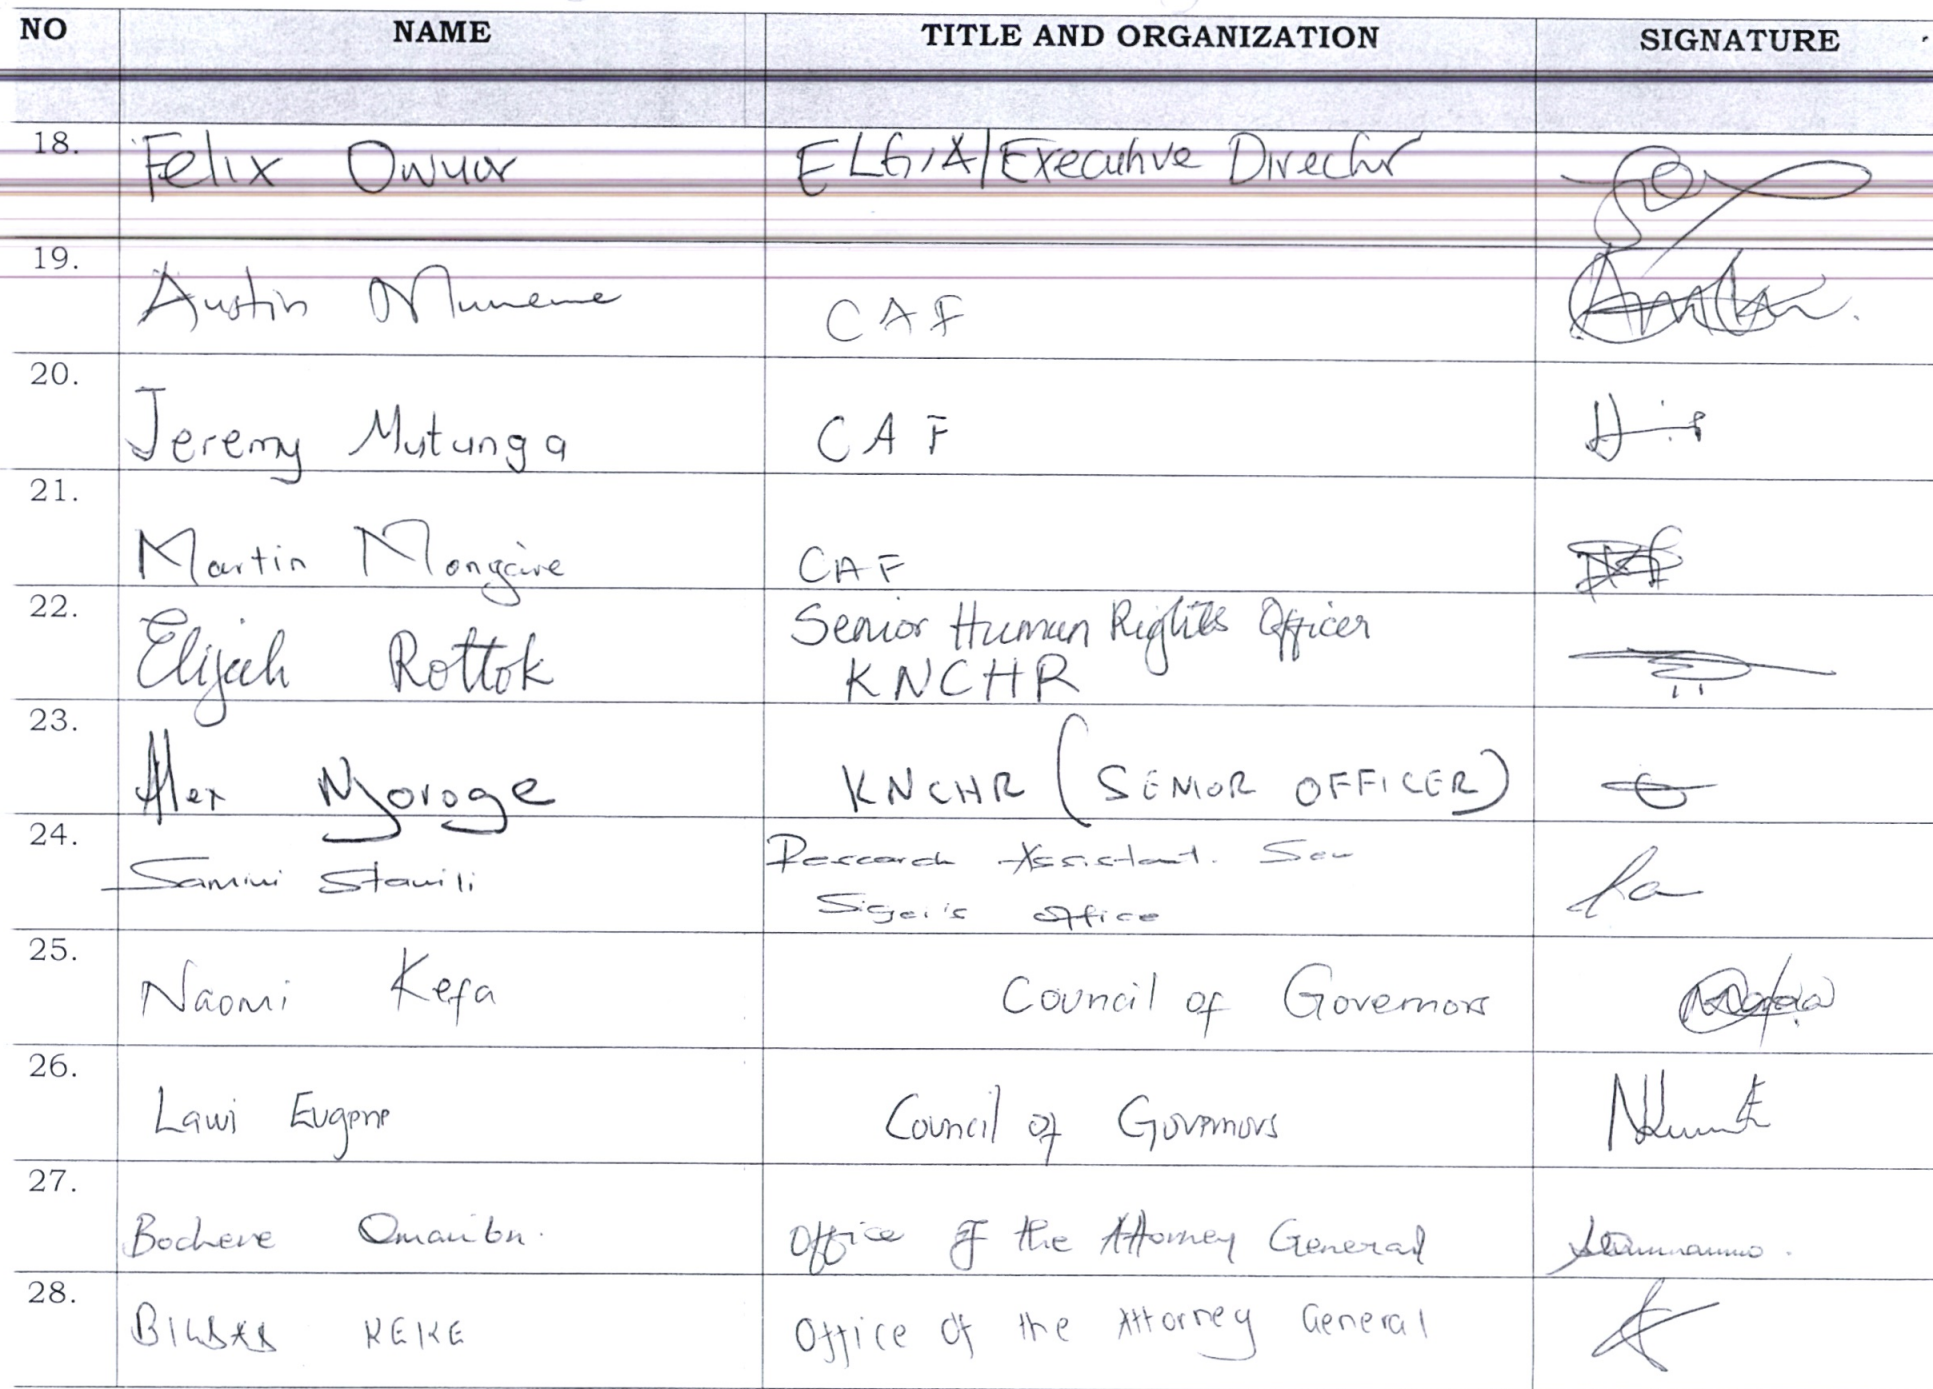 NO NAME TITLE AND ORGANIZATION SIGNATURE
18. Felix Owuor ELGIA/Executive Director
19. Austin Muneme CAF
20. Jeremy Mutunga CAF
21. Martin Mongare CAF
22. Elijah Rottok Senior Human Rights Officer
KNCHR
23. Alex Njoroge KNCHR (SENIOR OFFICER)
24. Research Assistant. Sen
Office
25. Naomi Kefa Council of Governors
26. Lawi Eugene Council of Governors
27. Office of the Attorney General
28. KEKE Office of the Attorney General